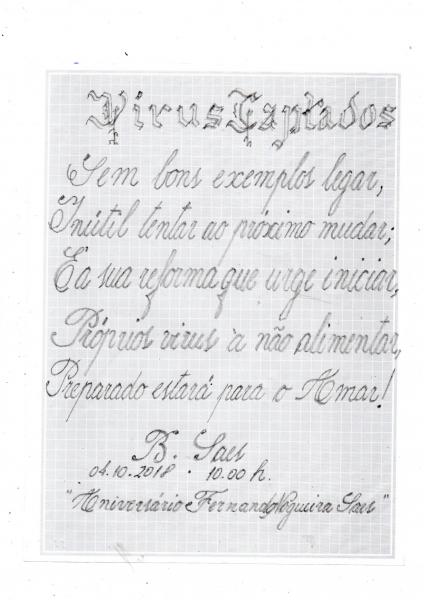 Virus Captados
Sem bons exemplos legar,
Inútil tentar ao próximo mudar;
É a sua reforma que urge iniciar,
Próprios virus à não alimentar,
Preparado estará para o Amar!
B. Saes
04.10.2018 · 10.00 h.
"Aniversário Fernando Nogueira Saes"